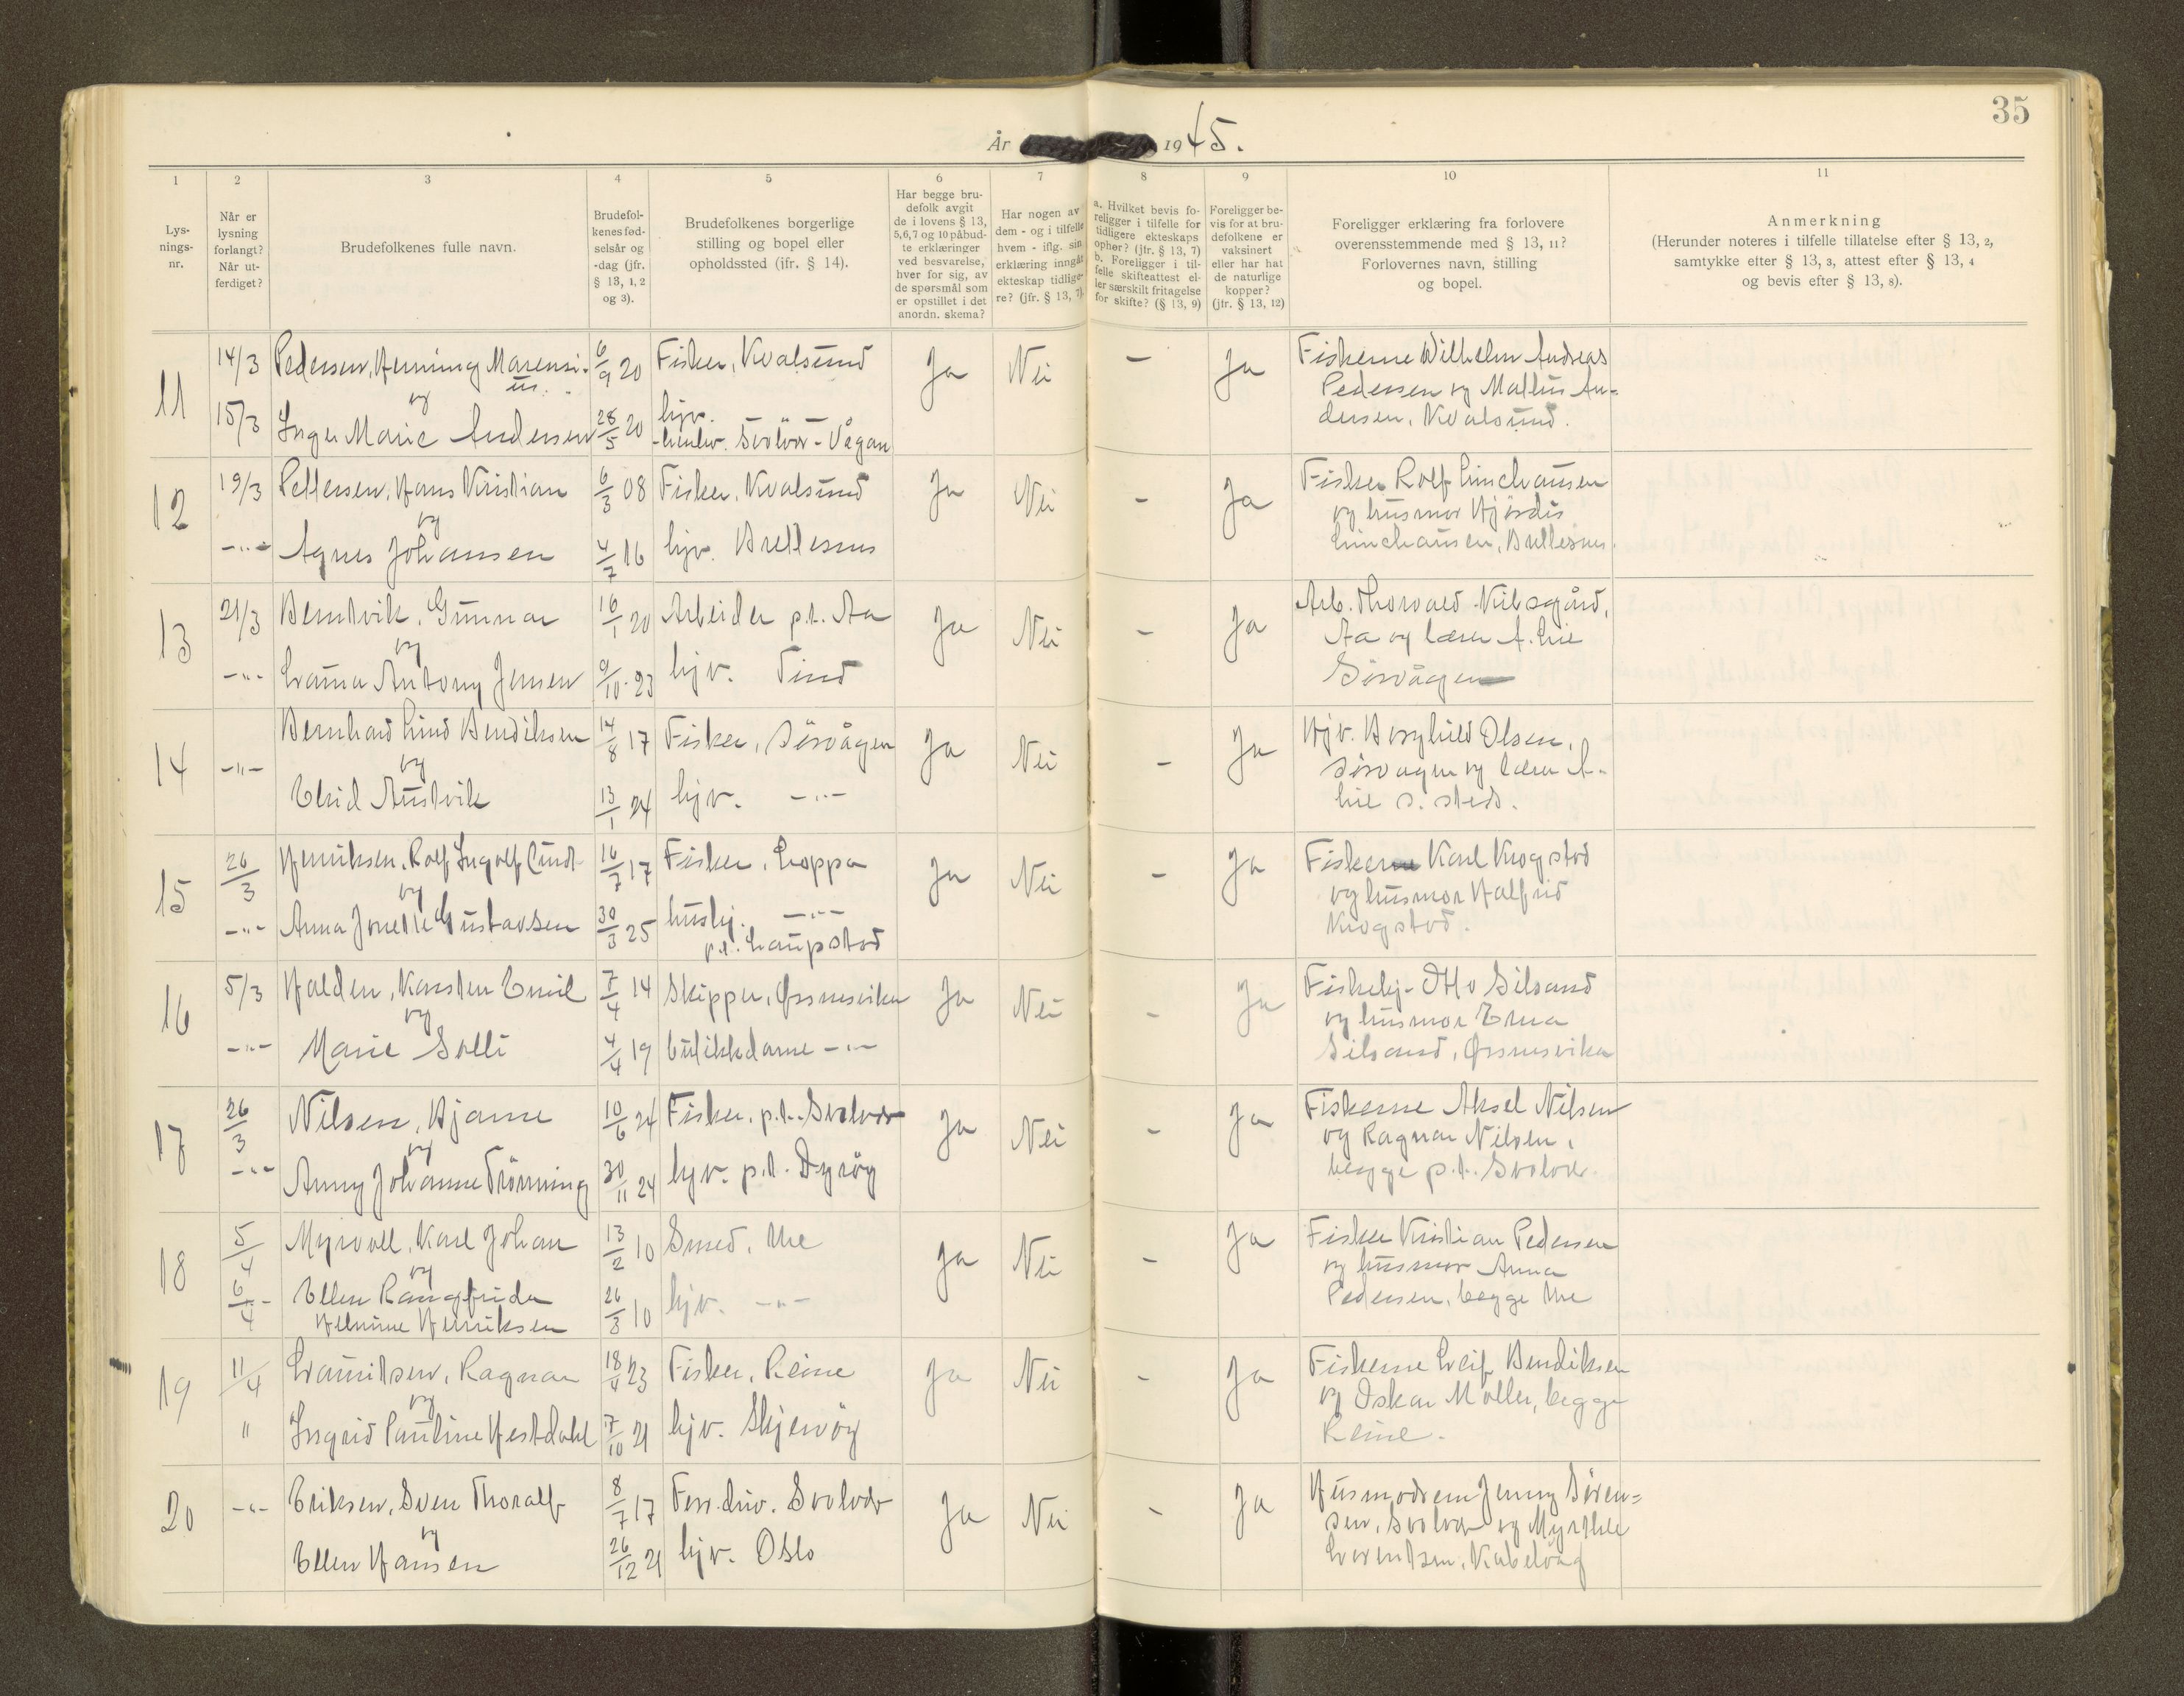 35
År 1945.
1 2 3 4 5 6 7 8 9 10 11
Lys-
nings-
nr.
Når er
lysning
forlangt?
Når ut-
ferdiget?
Brudefolkenes fulle navn.
Brudefol-
kenes fød-
selsår og
-dag (jfr.
§ 13, 1, 2
og 3).
Brudefolkenes borgerlige
stilling og bopel eller
opholdssted (jfr. § 14).
Har begge bru-
defolk avgit
de i lovens § 13,
5, 6, 7 og 10 påbud-
te erklæringer
ved besvarelse,
hver for sig, av
de spørsmål som
er opstillet i det
anordn. skema?
Har nogen av
dem - og i tilfelle
hvem - iflg. sin
erklæring inngåt
ekteskap tidlige-
re? (jfr. § 13, 7).
a. Hvilket bevis fo-
religger i tilfelle for
tidligere ekteskaps
opher? (jfr. § 13, 7)
b. Foreligger i til-
felle skifteattest el-
ler særskilt fritagelse
for skifte? (§ 13, 9)
Foreligger be-
vis for at bru-
defolkene er
vaksinert
eller har hat
de naturlige
kopper?
(jfr. § 13, 12)
Foreligger erklæring fra forlovere
overensstemmende med § 13, 11?
Forlovernes navn, stilling
og bopel.
Anmerkning
(Herunder noteres i tilfelle tillatelse efter § 13, 2,
samtykke efter § 13, 3, attest efter § 13, 4
og bevis efter § 13, 8).
11
14/3
15/3
Pedersen, Henning Marensi-
us.
og
Inger Marie Andersen
6/9 20
28/5 20
Fisker, Kvalsund
hjv.
Svolvær - Vågan
Ja Nei - Ja
Fiskerne Wilhelm Andreas
Pedersen og Mathis An-
dersen, Kvalsund.
12
19/3
-"-
Pettersen, Hans Kristian
og
Agnes Johansen
6/3 08
4/7 16
Fisker, Kvalsund
hjv. Brettesnes
Ja Nei - Ja
Fisker Rolf
og husmor Hjørdis
Brettesnes.
13
21/3
-"-
Berntvik, Gunnar
og
Antony Jensen
16/1 20
9/10 23
Arbeider p.t. Aa
hjv. Tind
Ja Nei - Ja
Arb. Thorvald
Aa og lærer A. Lie
Sørvågen
14
-"-
Bernhard Lind Bendiksen
og
Austvik
14/8 17
13/1 24
Fisker, Sørvågen
hjv. -"-
Ja Nei - Ja
Hjv. Borghild Olsen,
Sørvagen og lærer A.
Lie s. steds.
15
26/3
-"-
Henriksen, Rolf Ingolf Lind
og
Anna Jonette Gustavsen
16/7 17
30/3 25
Fisker, Loppa
hushj. -"-
p.t. Laupstad
Ja Nei - Ja
Fisker Karl Krogstad
og husmor Halfrid
Krogstad.
16
5/3
-"-
Halden, Karsten Emil
og
Marie Solli
7/4 14
4/4 19
Skipper, Ørsnesviken
butikkdame -"-
Ja Nei - Ja
Fiskehj. Otto Silsand
og husmor Erna
Silsand, Ørsnesviken
17
26/3
-"-
Nilsen, Bjarne
og
Anny Johanne Trönning
10/6 24
30/11 24
Fisker, p.t. Svolvær
hjv. p.t. Dyröy
Ja Nei - Ja
Fiskerne Aksel Nilsen
og Ragnar Nilsen,
begge p.t. Svolvær.
18
5/4
6/4 -
Myrvoll, Karl Johan
og
Ellen Rangfrida
Helmine Henriksen
13/2 10
26/3 10
Smed, Me
hjv. -"-
Ja Nei - Ja
Fisker Kristian Pedersen
og husmor Anna
Pedersen, begge Me
19
11/4
"
Lauritsen, Ragnar
og
Ingrid Pauline Hestdahl
18/4 23
7/10 21
Fisker, Reine
hjv. Skjervöy
Ja Nei - Ja
Fiskerne Leif Bendiksen
og Oskar Möller, begge
Reine.
20
-"-
Eriksen, Sven Thoralf
og
Ellen Hansen
8/7 17
26/12 21
Forr.driv. Svolvær
hjv. Oslo
Ja Nei - Ja
Husmödrene Jenny Sören=
sen, Svolvær og Myrthle
Lorentsen, Kabelvåg